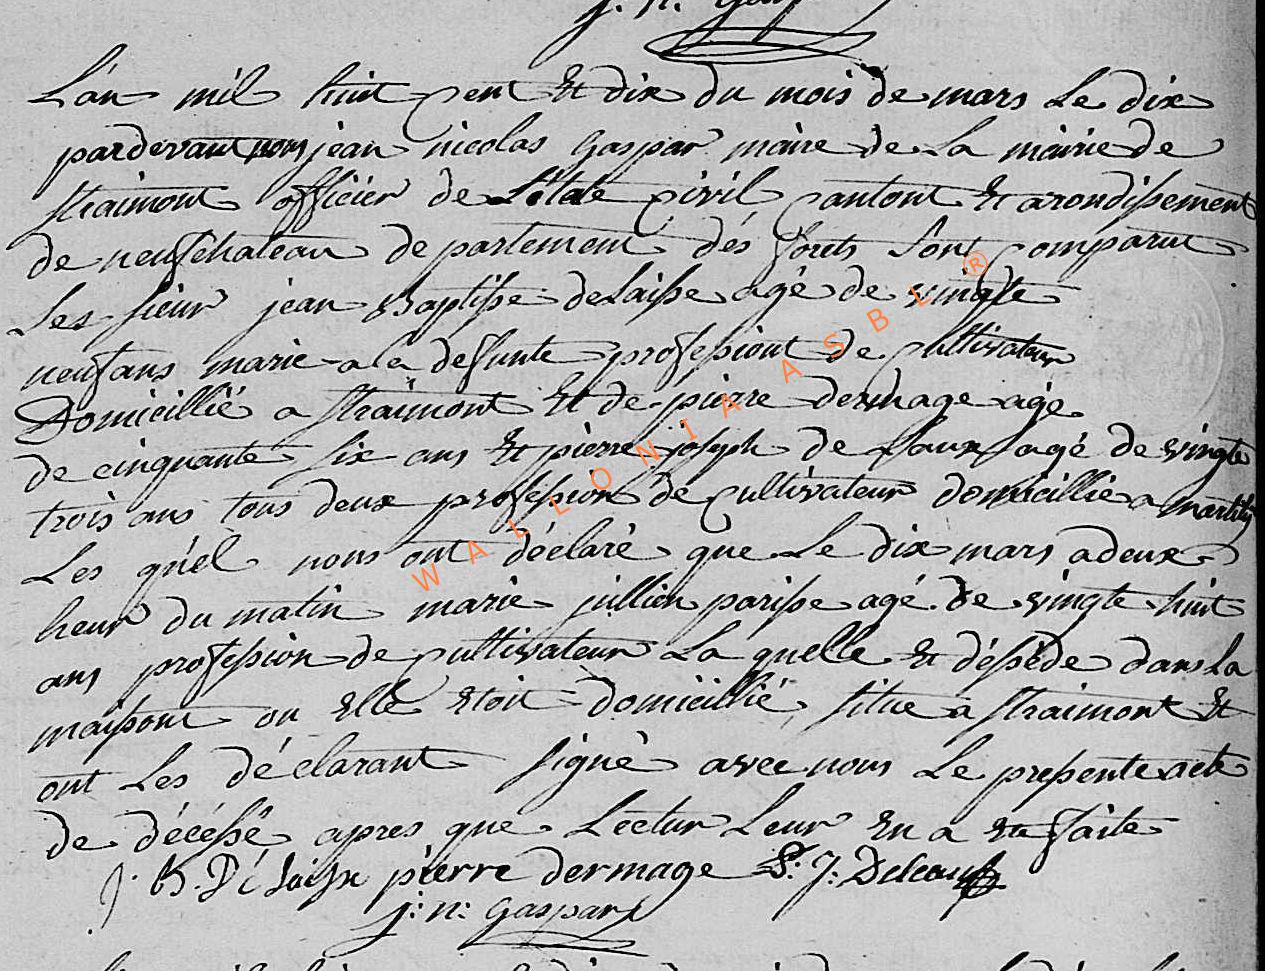 j. n. Gaspar
L'an mil huit cent Et dix du mois de mars Le dix
pardevant nous jean nicolas Gaspar maire de La mairie de
straimont officier de L'Etate civil cantont Et arondissement
de neufchateau departement dés forets sont comparut
Les sieur jean Baptisse delaisse agé de vingte
neuf ans marie a la defunte professiont de cultivateur
Domicillié a straimont Et de pierre dermage agé
de cinquante six ans Et pierre joseph de Laux agé de vingte
trois ans tous deux profession de cultivateur domicillié a martilly
Les quél nous ont déclaré que Le dix mars a deux
heur du matin marie jullien parisse agé de vingte huit
ans profession de cultivateur La quelle Et déssédé dans La
maisont ou Elle Etoit domicillié, situe a straimont Et
ont Les déclarant signé avec nous Le pressente acte
de décéssé apres que Lectur Leur En a Eté faite
j. B. Délaisse pierre dermage P. J. Deleau
j: n: Gaspar
WALLONIA ASBL ®